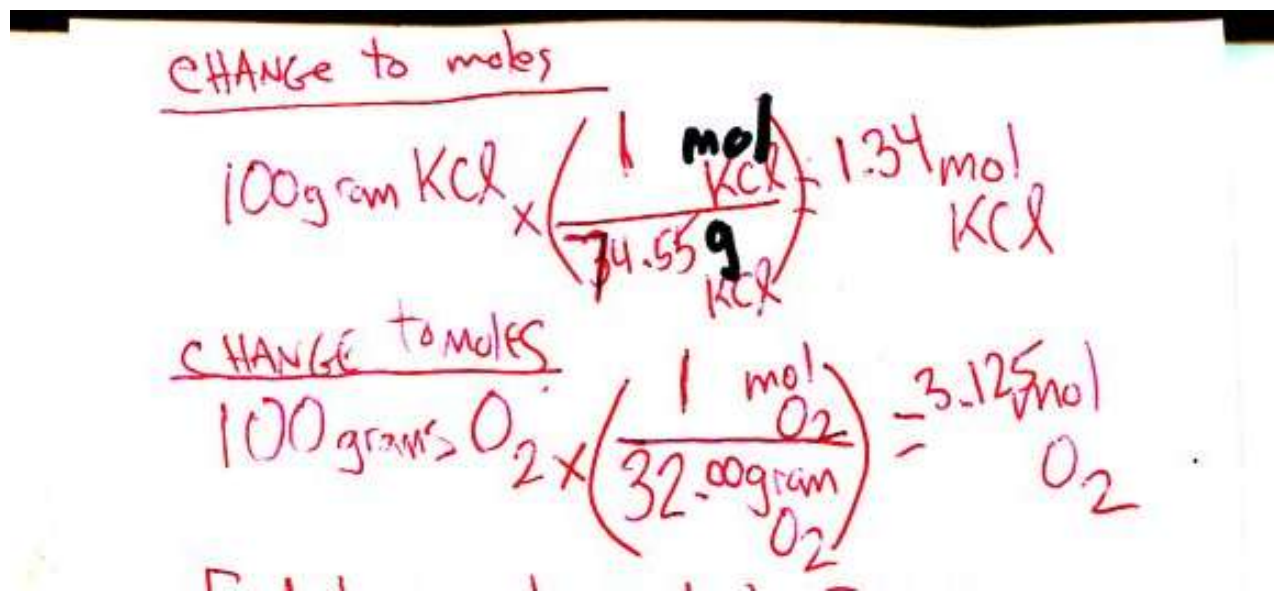 CHANGe to moles
100gram KCl x (1 mol KCl / 74.55 g KCl) = 1.34 mol KCl
CHANGE to Moles
100 grams O2 x (1 mol O2 / 32.00gram O2) = 3.125 mol O2